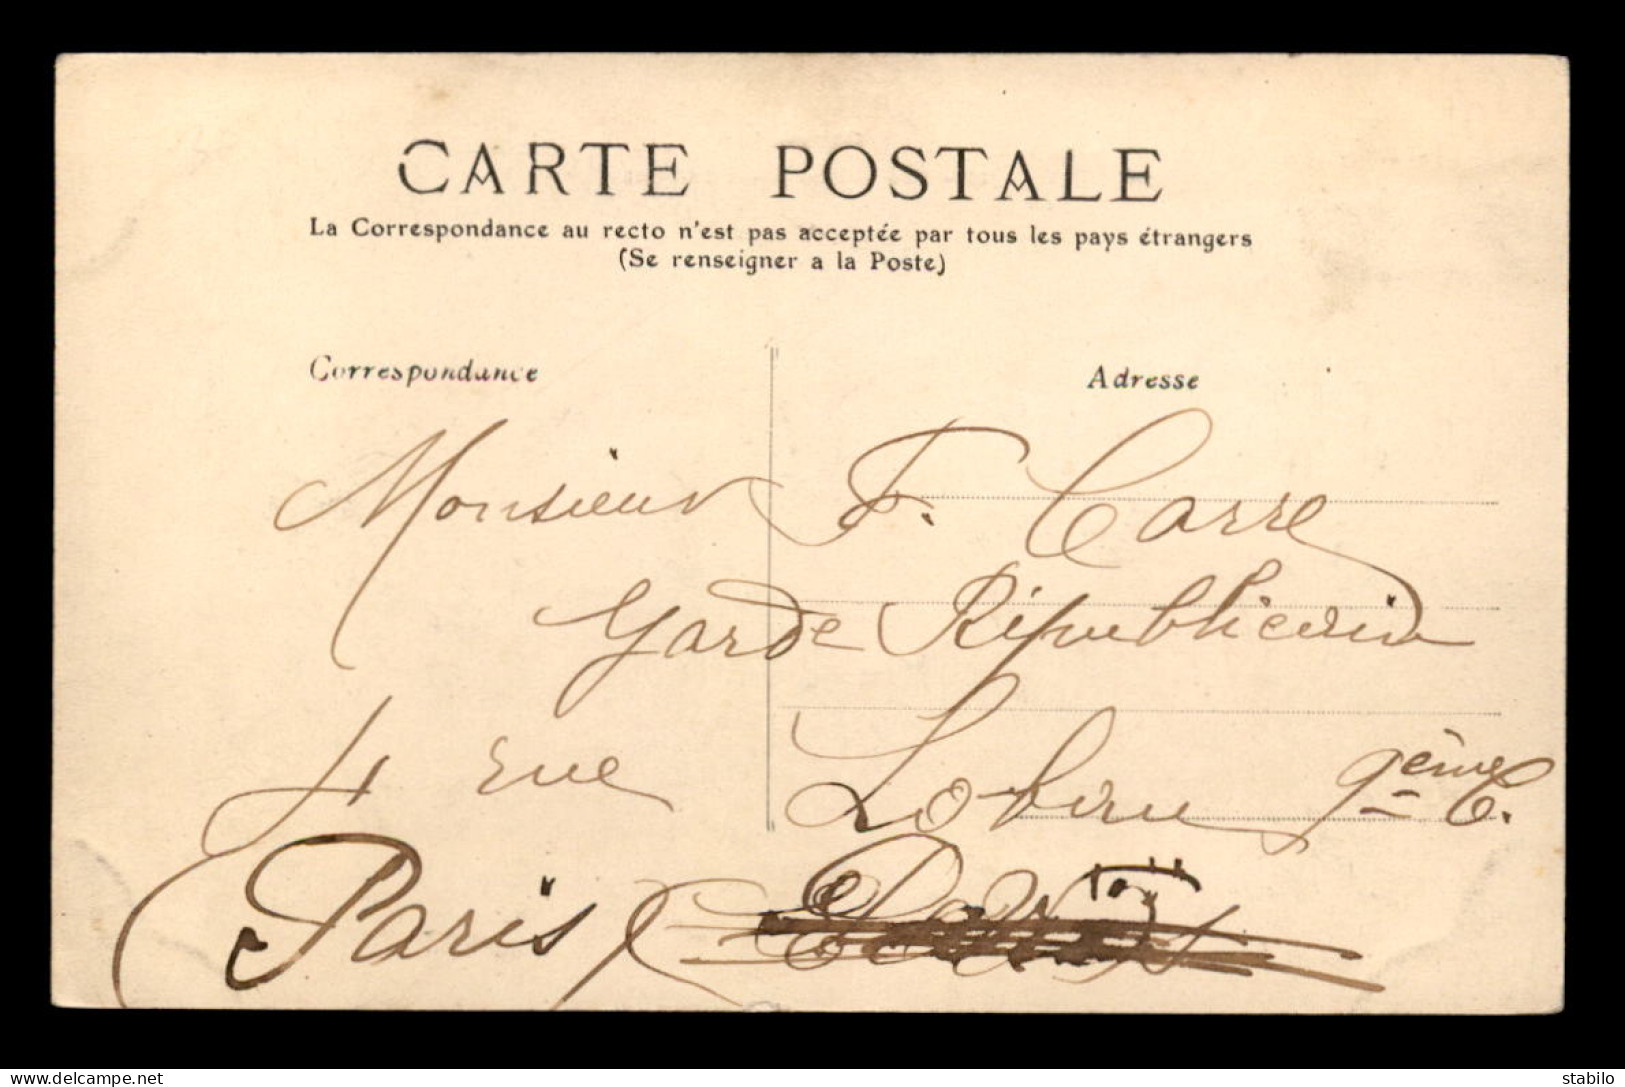 CARTE POSTALE
La Correspondance au recto n'est pas acceptée par tous les pays étrangers
(Se renseigner a la Poste)
Correspondance
Adresse
Monsieur F. Carre
Garde Républicain
4 rue Lobau 9ème C.
Paris
delcampe.net
stabilo